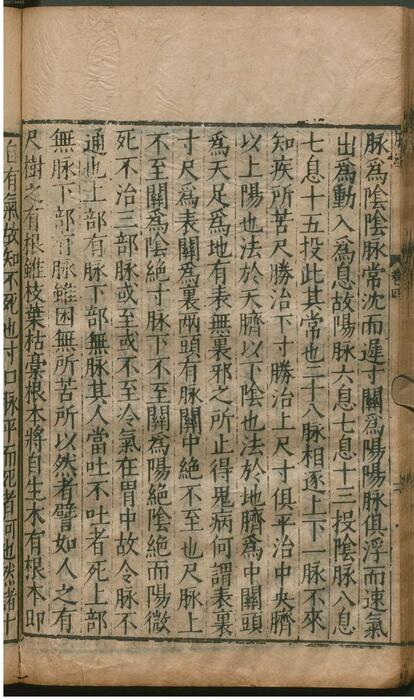 脉為陰陰脉常沈而遲寸關為陽陽脉俱浮而速氣
出為動入為息故陽脉六息七息十三投陰脉八息
七息十五投此其常也二十八脉相逐上下一脉不來
知疾所苦尺勝治下寸勝治上尺寸俱平治中央臍
以上陽也法於天臍以下陰也法於地臍為中關頭
為天足為地有表無裏邪之所止得鬼病何謂表裏
寸尺為表關為裏兩頭有脉關中絕不至也尺脉上
不至關為陰絕寸脉下不至關為陽絕陰絕而陽微
死不治三部脉或至或不至冷氣在胃中故令脉不
通也上部有脉下部無脉其人當吐不吐者死上部
無脉下部有脉雖困無所苦所以然者譬如人之有
尺樹之有根雖枝葉枯槁根本將自生木有根本即
自有氣故知不死也寸口脉平而死者何也然諸十
卷四